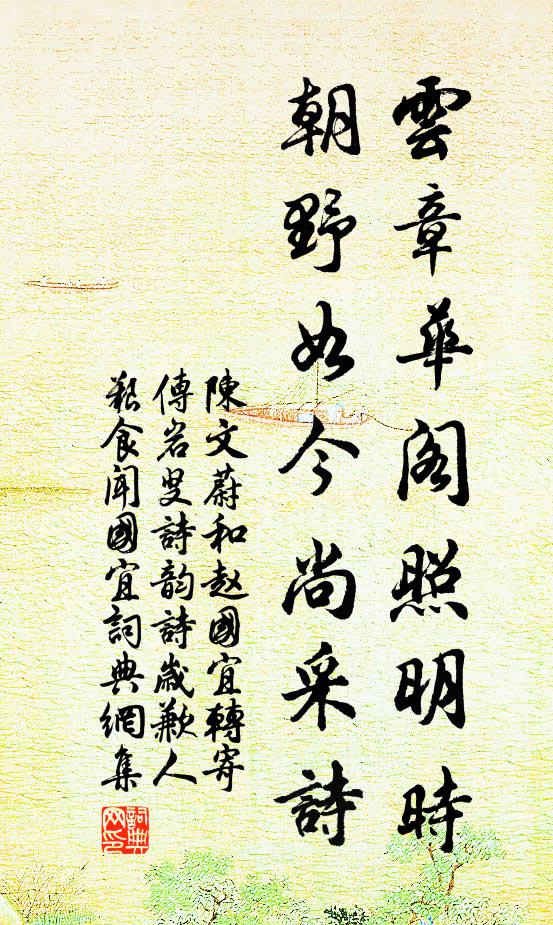 雲章華閣照明時
朝野如今尚采詩
陳文蔚和赵國宜轉寄
傳岩叟詩韵詩歲歉人
艱食闻國宜詞典網集
詞典网印